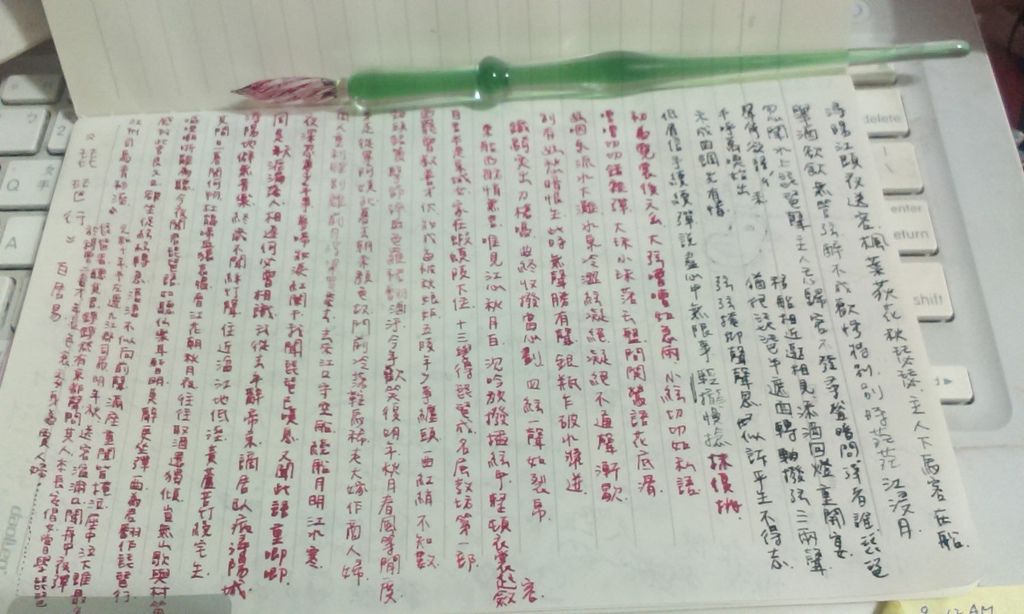 潯陽江頭夜送客楓葉荻花秋瑟瑟主人下馬客在船
舉酒欲飲無管弦醉不成歡慘將別別時茫茫江浸月
忽聞水上琵琶聲主人忘歸客不發尋聲暗問彈者誰琵琶
聲停欲語遲移船相近邀相見添酒回燈重開宴
千呼萬喚始出來猶抱琵琶半遮面轉軸撥弦三兩聲
未成曲調先有情弦弦掩抑聲聲思似訴平生不得志
低眉信手續續彈說盡心中無限事輕攏慢撚抹復挑
初為霓裳後六么大弦嘈嘈如急雨小弦切切如私語
嘈嘈切切錯雜彈大珠小珠落玉盤間關鶯語花底滑
幽咽泉流水下灘水泉冷澀弦凝絕凝絕不通聲漸歇
別有幽愁暗恨生此時無聲勝有聲銀瓶乍破水漿迸
鐵騎突出刀槍鳴曲終收撥當心劃四弦一聲如裂帛
東船西舫悄無言唯見江心秋月白沉吟放撥插弦中整頓衣裳起斂容
自言本是京城女家在蝦蟆陵下住十三學得琵琶成名屬教坊第一部
曲罷曾教善才伏妝成每被秋娘妒五陵年少爭纏頭一曲紅綃不知數
鈿頭銀篦擊節碎血色羅裙翻酒污今年歡笑復明年秋月春風等閒度
弟走從軍阿姨死暮去朝來顏色故門前冷落鞍馬稀老大嫁作商人婦
商人重利輕別離前月浮梁買茶去去來江口守空船繞船月明江水寒
夜深忽夢少年事夢啼妝淚紅闌干我聞琵琶已嘆息又聞此語重唧唧
同是天涯淪落人相逢何必曾相識我從去年辭帝京謫居臥病潯陽城
潯陽地僻無音樂終歲不聞絲竹聲住近湓江地低濕黃蘆苦竹繞宅生
其間旦暮聞何物杜鵑啼血猿哀鳴春江花朝秋月夜往往取酒還獨傾豈無山歌與村笛
嘔啞嘲哳難為聽今夜聞君琵琶語如聽仙樂耳暫明莫辭更坐彈一曲為君翻作琵琶行
感我此言良久立卻坐促弦弦轉急淒淒不似向前聲滿座重聞皆掩泣座中泣下誰最多
江州司馬青衫濕
元和十年左遷九江郡司馬明年秋送客湓浦口聞舟中夜彈
琵琶者聽其音錚錚然有京都聲問其人本長安倡女嘗學琵琶
於穆曹二善才年長色衰委身為賈人婦
琵琶行 白居易
delete
enter
return
shift
Q
A
2
文字
AM